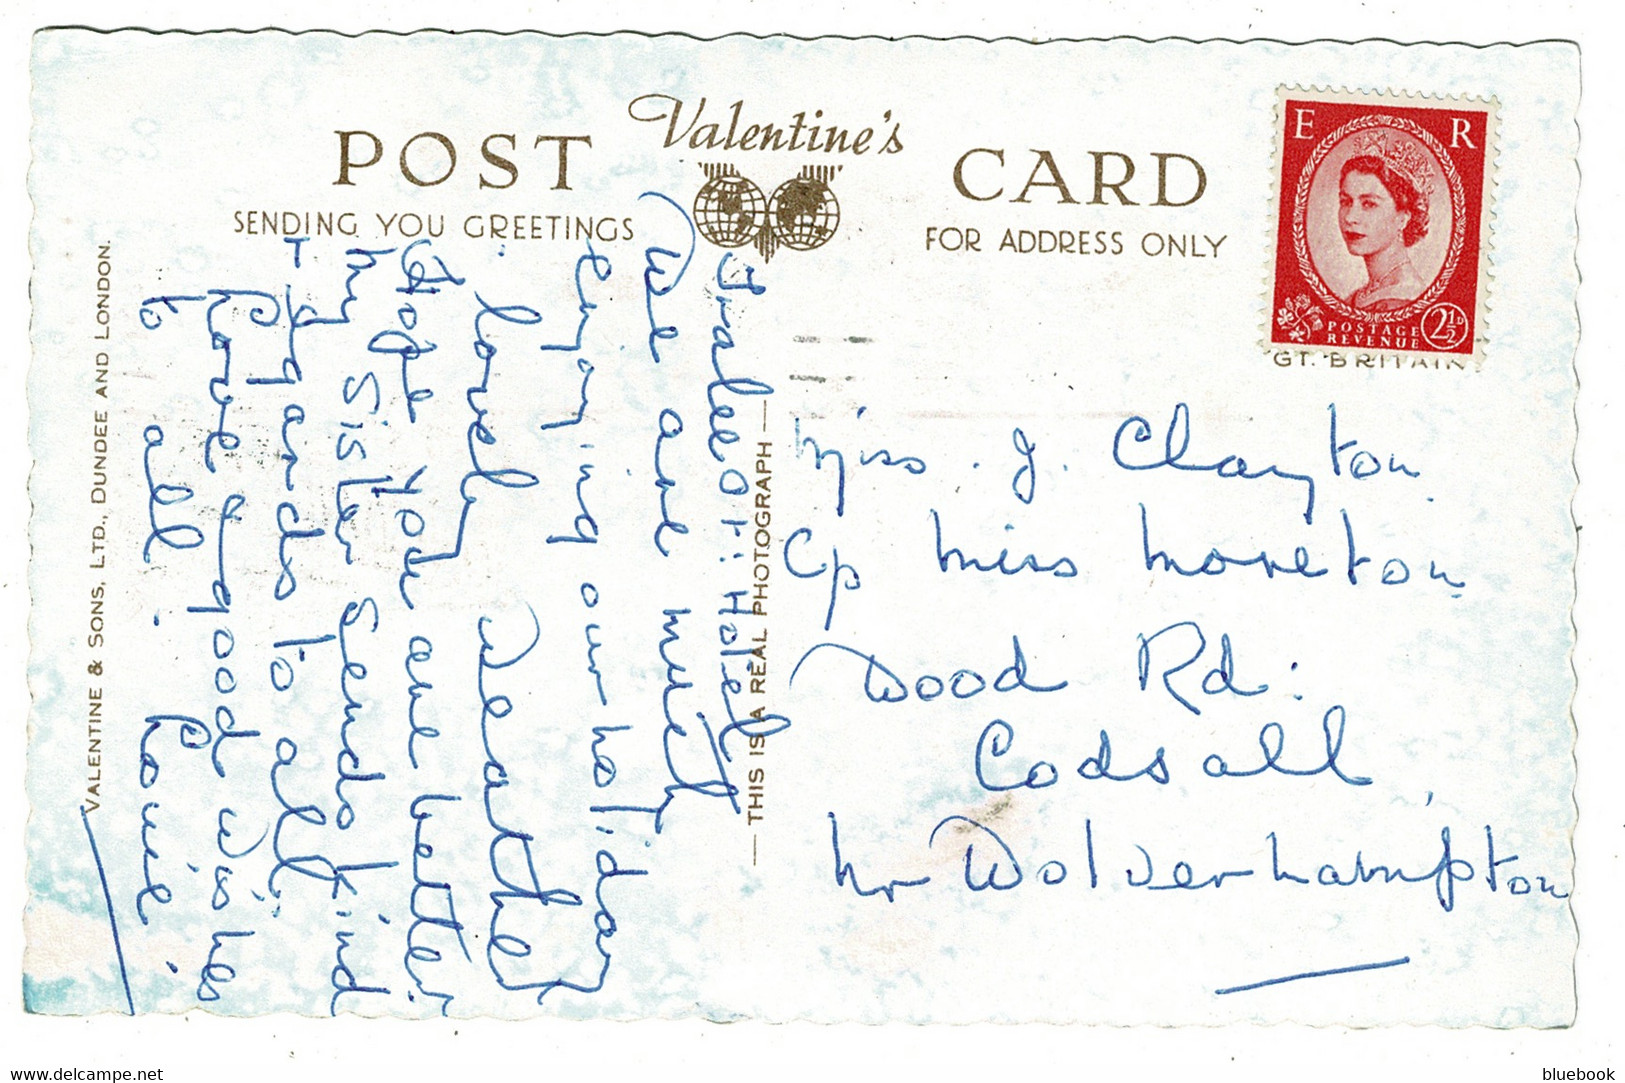 POST Valentine's CARD
SENDING YOU GREETINGS
FOR ADDRESS ONLY
E R
POSTAGE
REVENUE
2½D
GT. BRITAIN
VALENTINE & SONS, LTD., DUNDEE AND LONDON.
THIS IS A REAL PHOTOGRAPH
Hotel
We are much
enjoying our holiday
lovely weather
Hope you are better
My Sister sends kind
regards to all
Love & good wishes
to all. Louie
Miss. J. Clayton
C/o Miss Moreton
Wood Rd:
Codsall,
Nr Wolverhampton
delcampe.net
bluebook